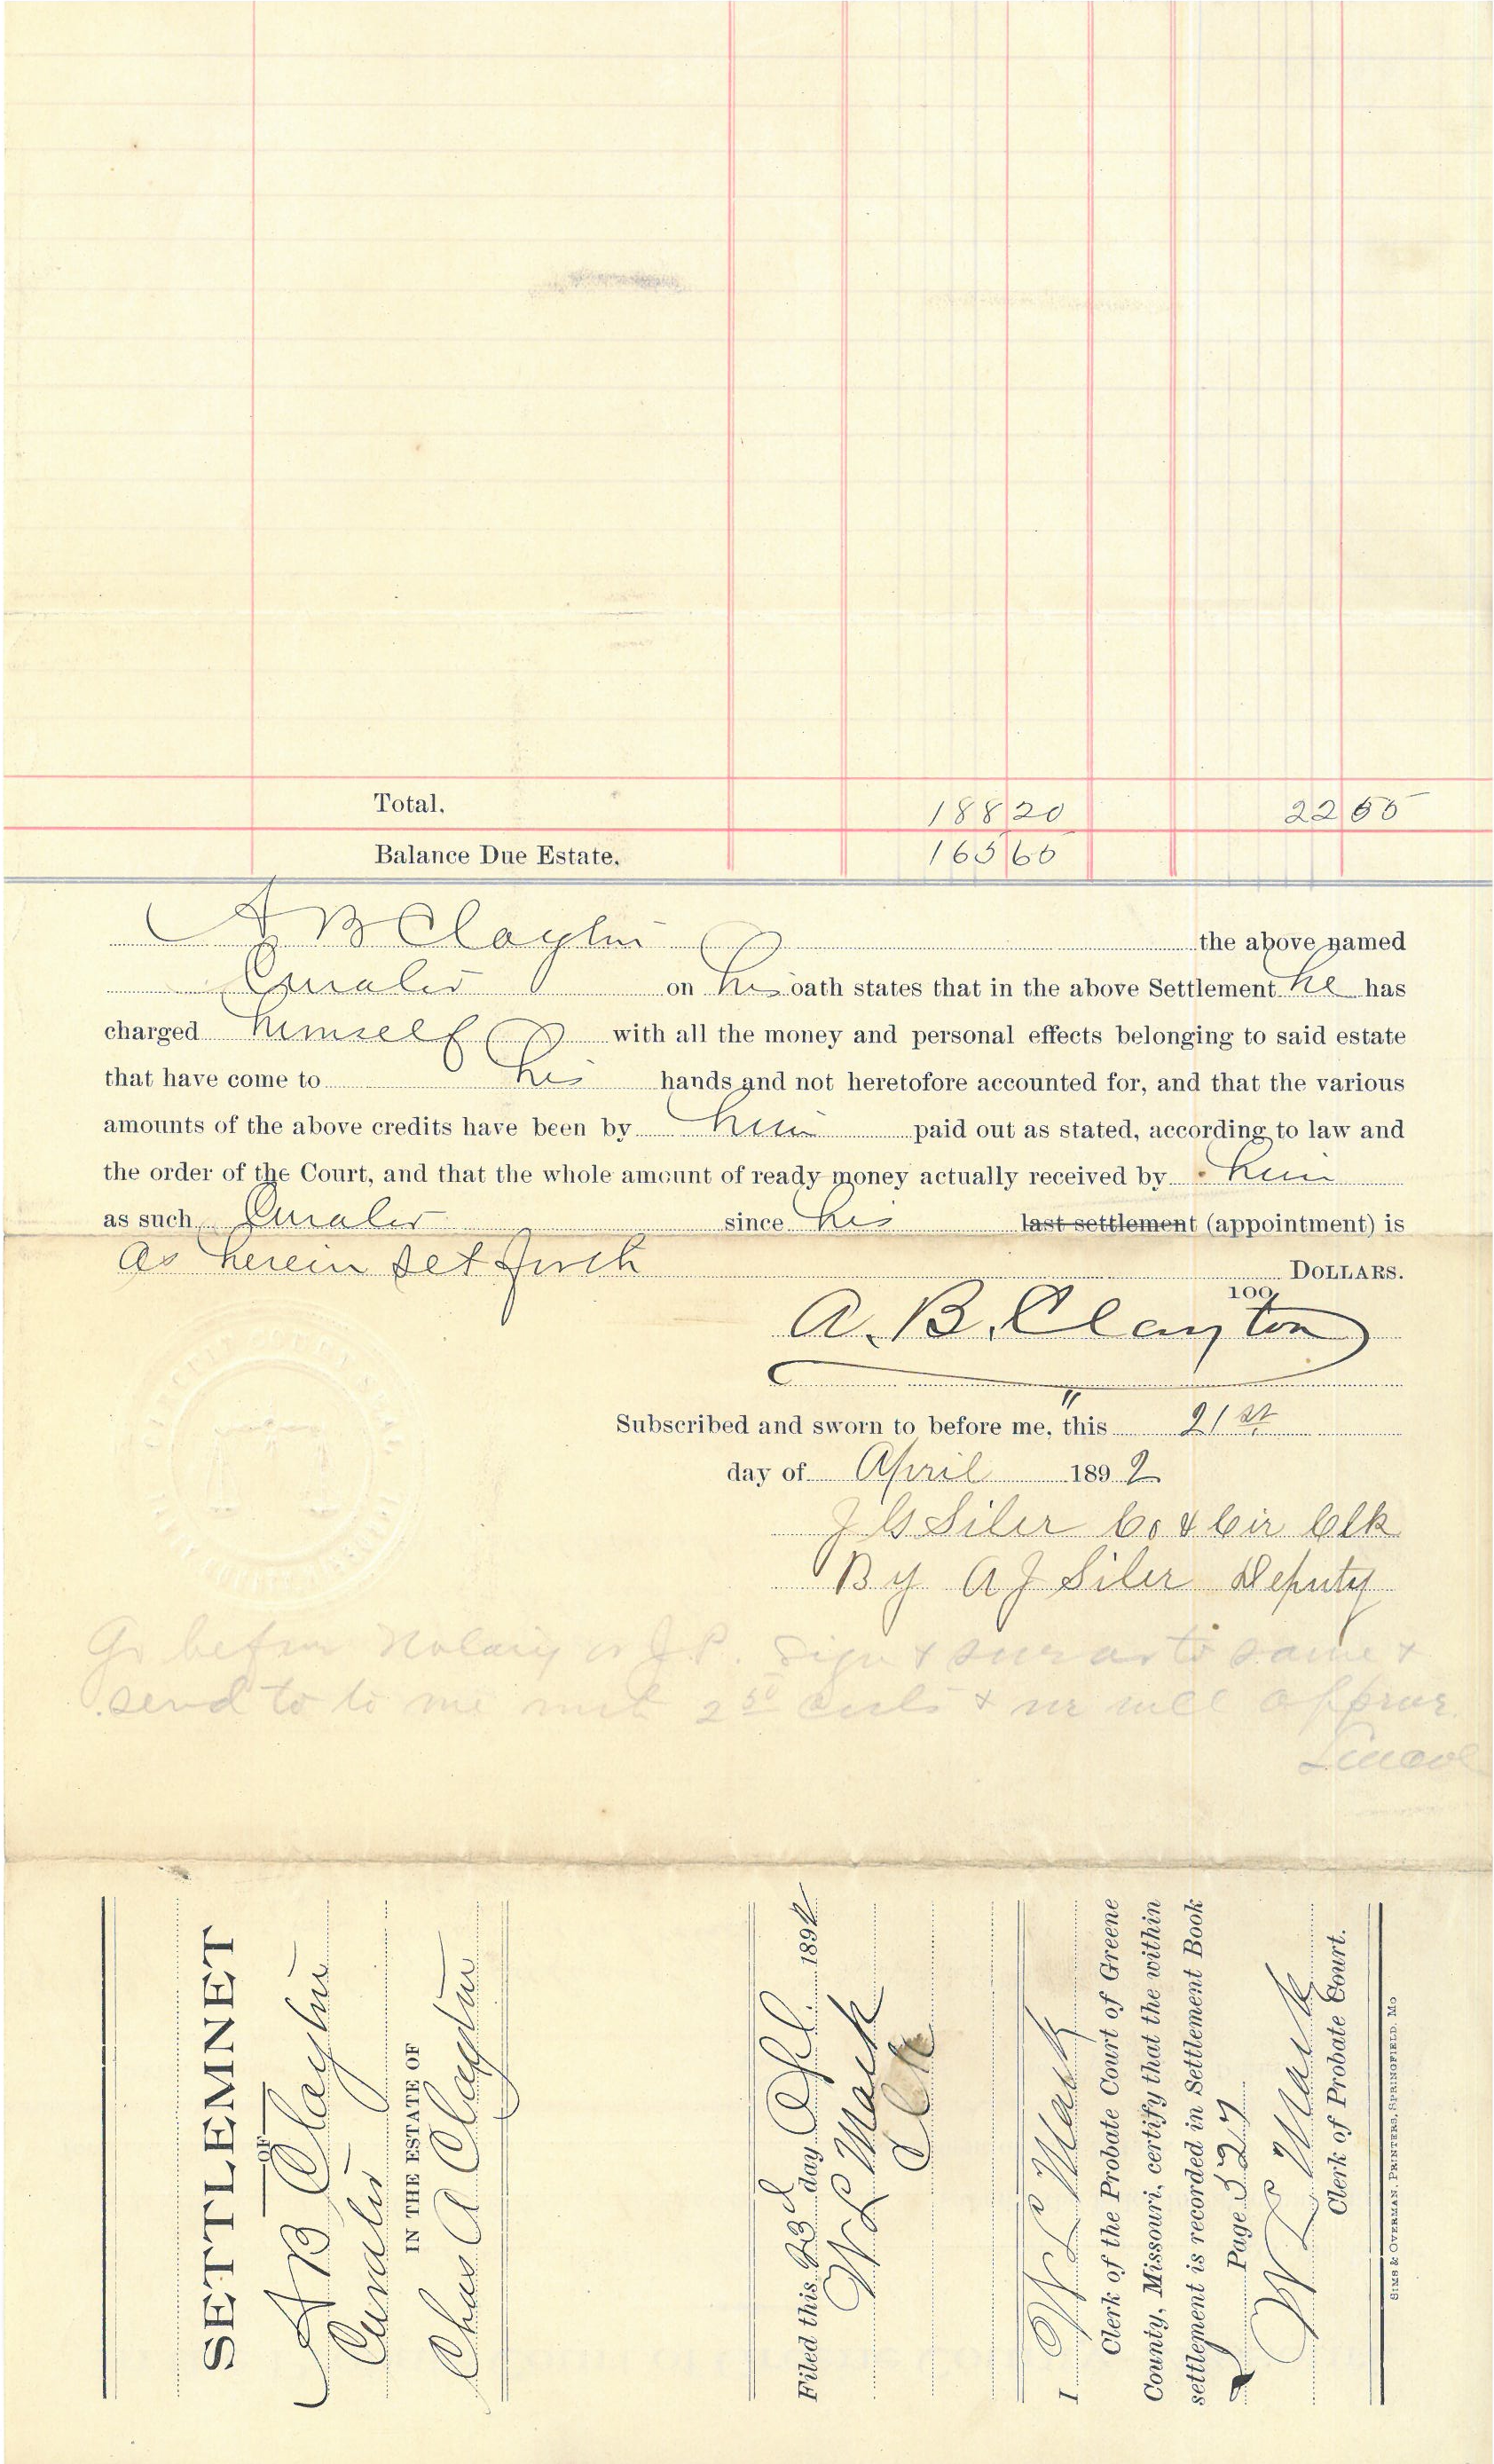 Total. 188 20 22 55
Balance Due Estate. 165 65
A B Clayton the above named
Curator on his oath states that in the above Settlement he has
charged himself with all the money and personal effects belonging to said estate
that have come to his hands and not heretofore accounted for, and that the various
amounts of the above credits have been by him paid out as stated, according to law and
the order of the Court, and that the whole amount of ready money actually received by him
as such Curator since his last settlement (appointment) is
as herein set forth DOLLARS.
100
A. B. Clayton
Subscribed and sworn to before me, this 21st
day of April 1892
J G Siler Co & Cir Clk
By A J Siler Deputy
Go before Notary or J.P. Sign & swear to same &
send to me with 2 50 costs & we will approve
SETTLEMNET
OF
A B Clayton
Curator
IN THE ESTATE OF
Chas A Clayton
Filed this 23d day Apl 1892
W L Mack
Clk
I W L Mack
Clerk of the Probate Court of Greene
County, Missouri, certify that the within
settlement is recorded in Settlement Book
J Page 327
W L Mack
Clerk of Probate Court.
SIMS & OVERMAN, PRINTERS, SPRINGFIELD, MO